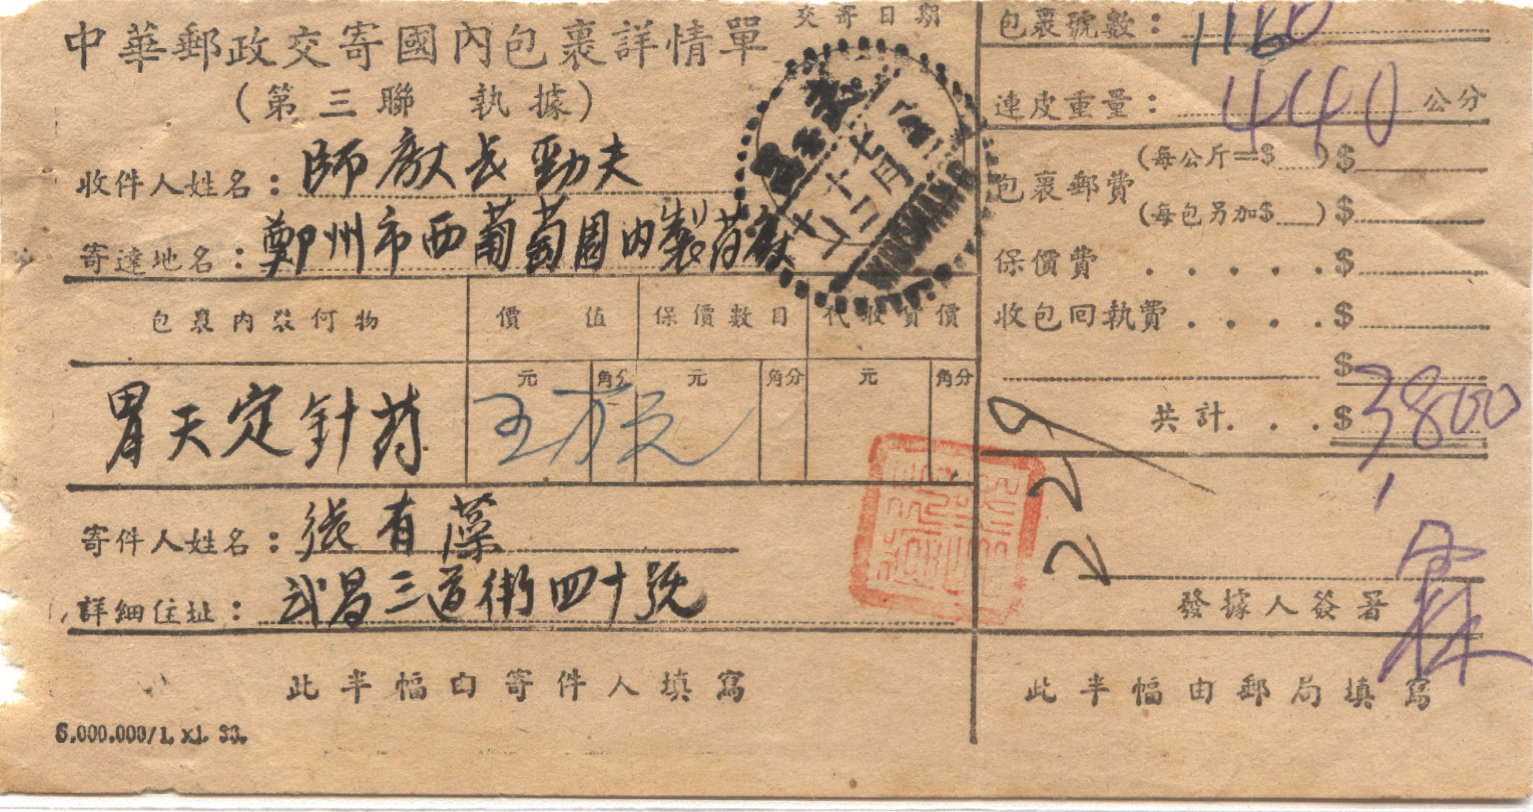 中華郵政交寄國內包裹詳情單
(第三聯 執據)
收件人姓名：師廠長勁夫
寄達地名：鄭州市西葡萄園內製葯廠
包裹內裝何物 價值 保價數目 代收貨價
元 角分 元 角分 元 角分
胃天定針葯 五万元
寄件人姓名：張有藻
詳細住址：武昌三道街四十號
此半幅由寄件人填寫
5,000,000/1. xi. 33.
交寄日期
WUCHANG
包裹號數：1160
連皮重量：440 公分
包裹郵費
(每公斤=$ )$
(每包另加$ )$
保價費 . . . . . $
收包回執費 . . . . $
$
共計 . . . . $ 3800
發據人簽署
此半幅由郵局填寫